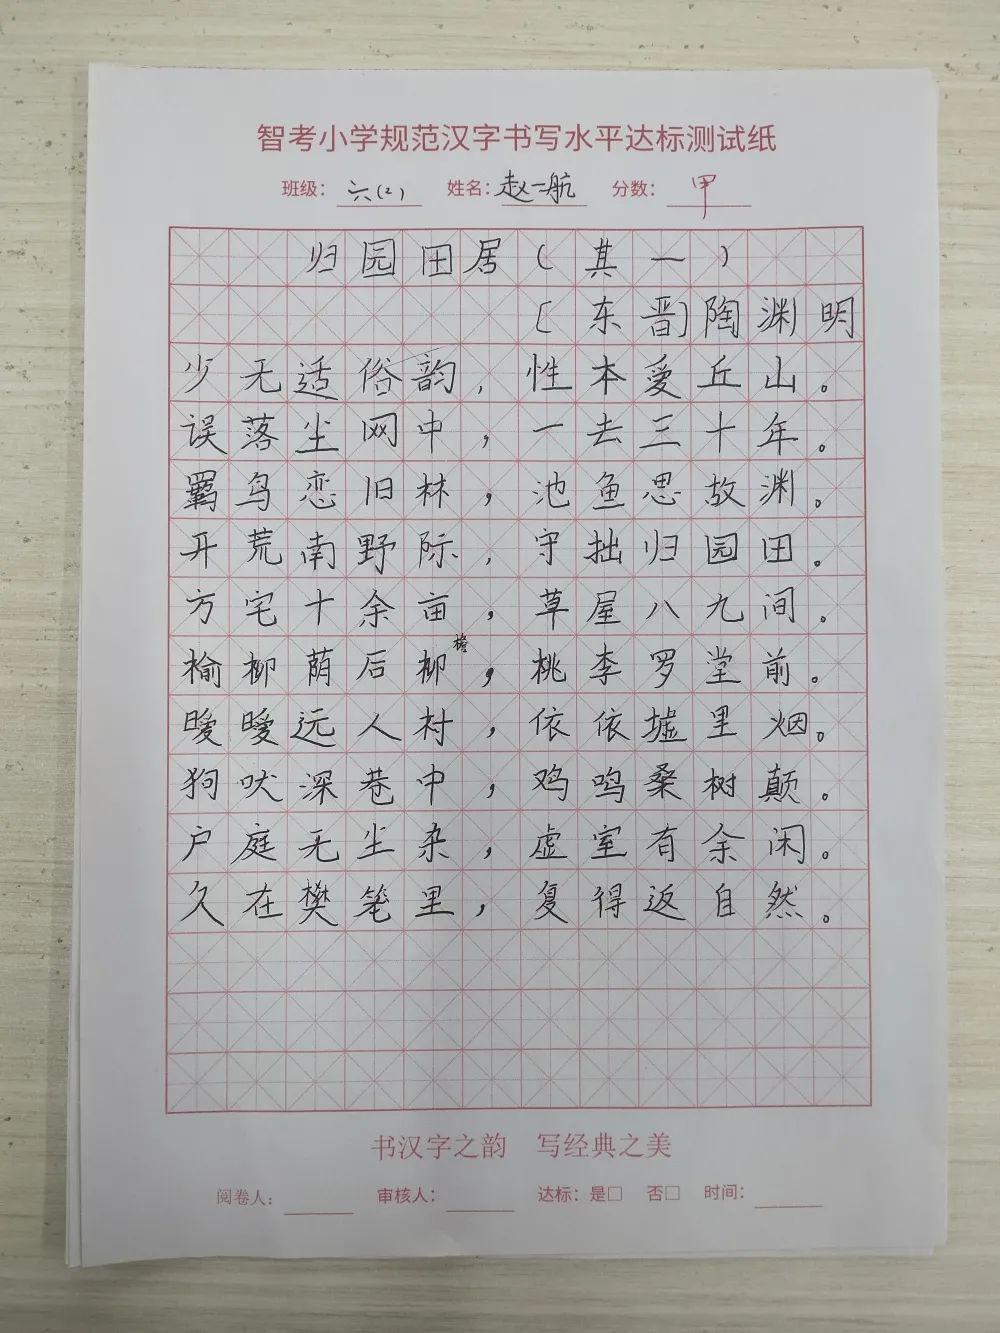 智考小学规范汉字书写水平达标测试纸
班级：六(2) 姓名：赵一航 分数：甲
归园田居(其一)
[东晋]陶渊明
少无适俗韵，性本爱丘山。
误落尘网中，一去三十年。
羁鸟恋旧林，池鱼思故渊。
开荒南野际，守拙归园田。
方宅十余亩，草屋八九间。
榆柳荫后柳檐，桃李罗堂前。
暧暧远人村，依依墟里烟。
狗吠深巷中，鸡鸣桑树颠。
户庭无尘杂，虚室有余闲。
久在樊笼里，复得返自然。
书汉字之韵 写经典之美
阅卷人： 审核人： 达标：是□ 否□ 时间：